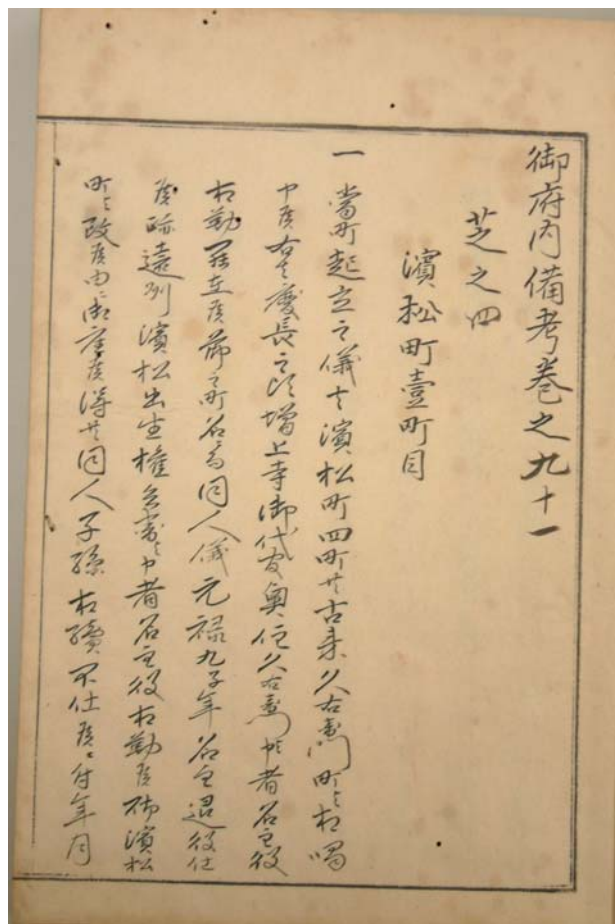 御府内備考巻之九十一
芝之四
濱松町壹町目
一 當町起立之儀者濱松町四町共古来久右衛門町与相唱
申候右者慶長之頃增上寺御代官奥住久右衛門与申者名主役
相勤罷在候節之町名ニ而同人儀元禄九子年名主退役仕
候跡遠州濱松出生権兵衛与申者名主役相勤候砌濱松
町与改候由ニ御座候得共同人子孫相續不仕候ニ付年月